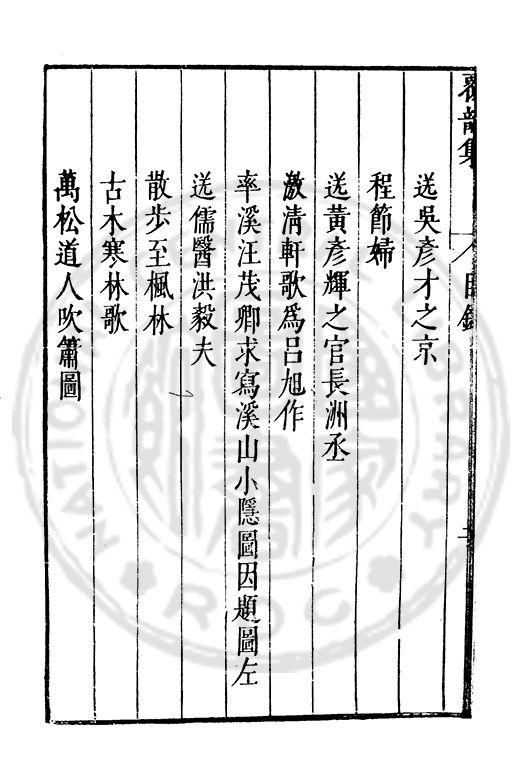 目錄
送吳彥才之京
程節婦
送黃彥輝之官長洲丞
激清軒歌爲呂旭作
率溪汪茂卿求寫溪山小隱圖因題圖左
送儒醫洪毅夫
散步至楓林
古木寒林歌
萬松道人吹簫圖